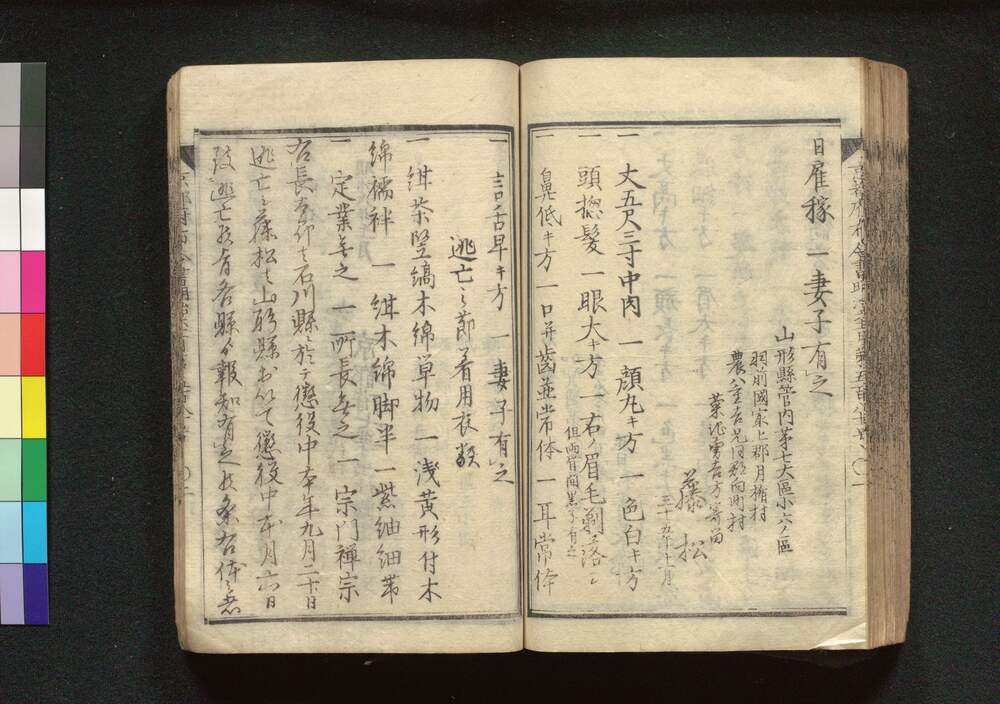 日雇稼 一妻子有之
山形縣管内第七大區小六ノ區
羽前國最上郡月楯村
農 吉兄同郡向町村
方寄留
藤松
三十九年十月
一丈五尺三寸中肉 一顔丸キ方 一色白キ方
一頭揔髪 一眼大キ方 一右ノ眉毛剃落シ
但両眉間黒子有之
一鼻低キ方 一口并齒並常体 一耳常体
一言舌早キ方 一妻子有之
逃亡之節着用衣類
一紺茶竪縞木綿単物 一浅黄形付木
綿襦袢 一紺木綿脚半 一紫紬細帯
一定業無之 一所長無之 一宗門禅宗
右長 ハ石川縣ニ於テ懲役中本年九月二十日
逃亡之藤松ハ山形縣於いて懲役中本月六日
致逃亡候旨各縣ゟ報知有之候条右体之者